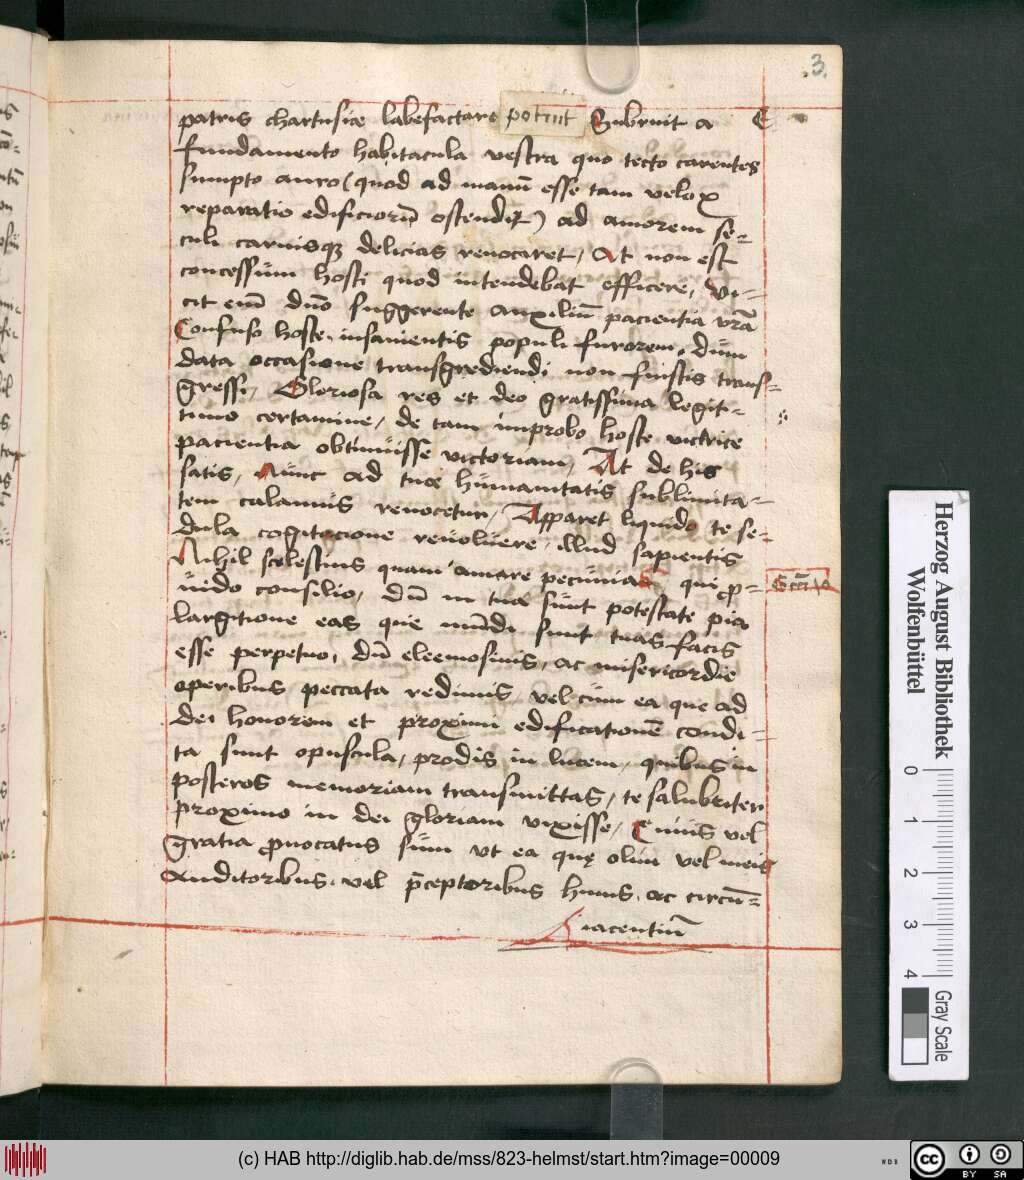 3.
patris chartusiæ labefactare potuit Subruit a
fundamento habitacula vestra quo tecto carentes
sumpto auro (quod ad manū esse tam velox
reparatio edificiorū ostendit) ad amorem se=
culi carnisqꝫ delicias reuocaret, At non est
concessum hosti quod intendebat efficere, vi=
cit enī dūo suggerente auxiliū pacientia vrā
Confuso hoste, insanientis populi furorem, dum
data occasione transgrediendi non fuistis trans=
gressi, Gloriosa res et deo gratissima legit=
timo certamine, de tam improbo hoste victrice
pacientia obtinuisse victoriam, At de his
satis, Nunc ad tuæ humanitatis sublimita=
tem calamus reuocetur, Apparet liquido te se=
dula cogitacione reuoluere, illud sapientis
Nihil scelestius quam amare pecunias qui ꝓ=
uido consilio, dū in tua sunt potestate pia
largitione eas que mūdi sunt tuas facis
esse perpetuo, dū eleemosinis, ac misericordie
operibus peccata redimis vel cum ea que ad
dei honorem et proximi edificationē condi=
ta sunt opuscula, prodis in lucem, quibus in
posteros memoriam transmittas, te salubriter
proximo in dei gloriam vixisse, Cuius vel
gratia ꝓuocatus sum vt ea quę olim vel meis
auditoribus, vel p̄ceptoribus huius, ac circū=
iacentiū
Herzog August Bibliothek
Wolfenbüttel
0 1 2 3 4
Gray Scale
(c) HAB http://diglib.hab.de/mss/823-helmst/start.htm?image=00009
cc BY SA